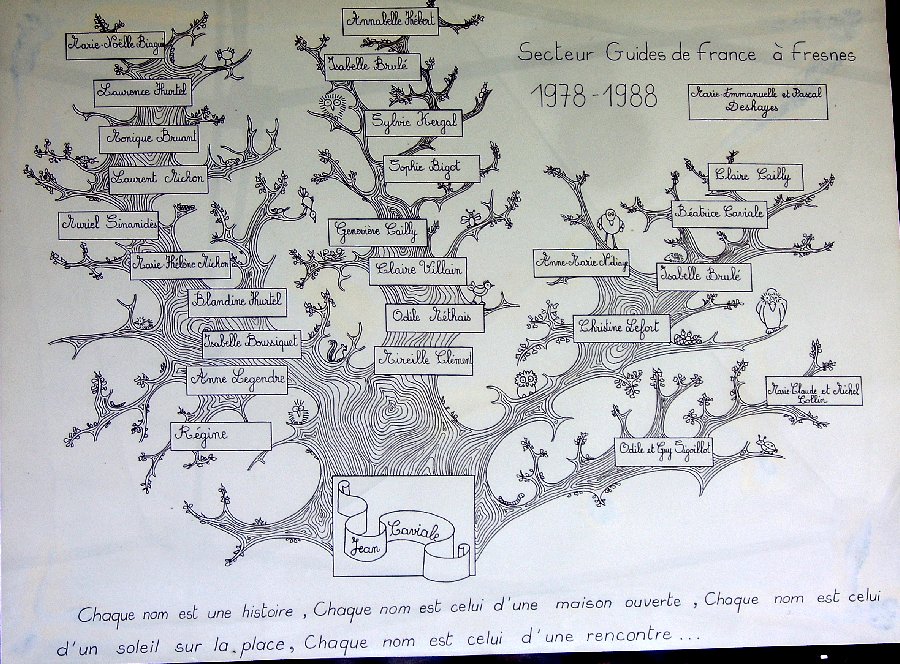 Annabelle Hébert
Marie-Noëlle Biague
Secteur Guides de France à Fresnes
Isabelle Brulé
Laurence Hurtel
1978-1988
Marie-Emmanuelle et Pascal
Deshayes
Sylvie Hergal
Monique Bruant
Sophie Bigot
Laurent Michon
Claire Cailly
Béatrice Caviale
Muriel Sinamidès
Geneviève Cailly
Marie-Hélène Michon
Claire Villain
Anne-Marie
Isabelle Brulé
Blandine Hurtel
Odile Méthais
Christine Lefort
Isabelle Boussiquet
Mireille Clément
Anne Legendre
Marie Claude et Michel
Régine
Odile et Guy Sigoillot
Jean Caviale
Chaque nom est une histoire, Chaque nom est celui d'une maison ouverte, Chaque nom est celui
d'un soleil sur la place, Chaque nom est celui d'une rencontre...